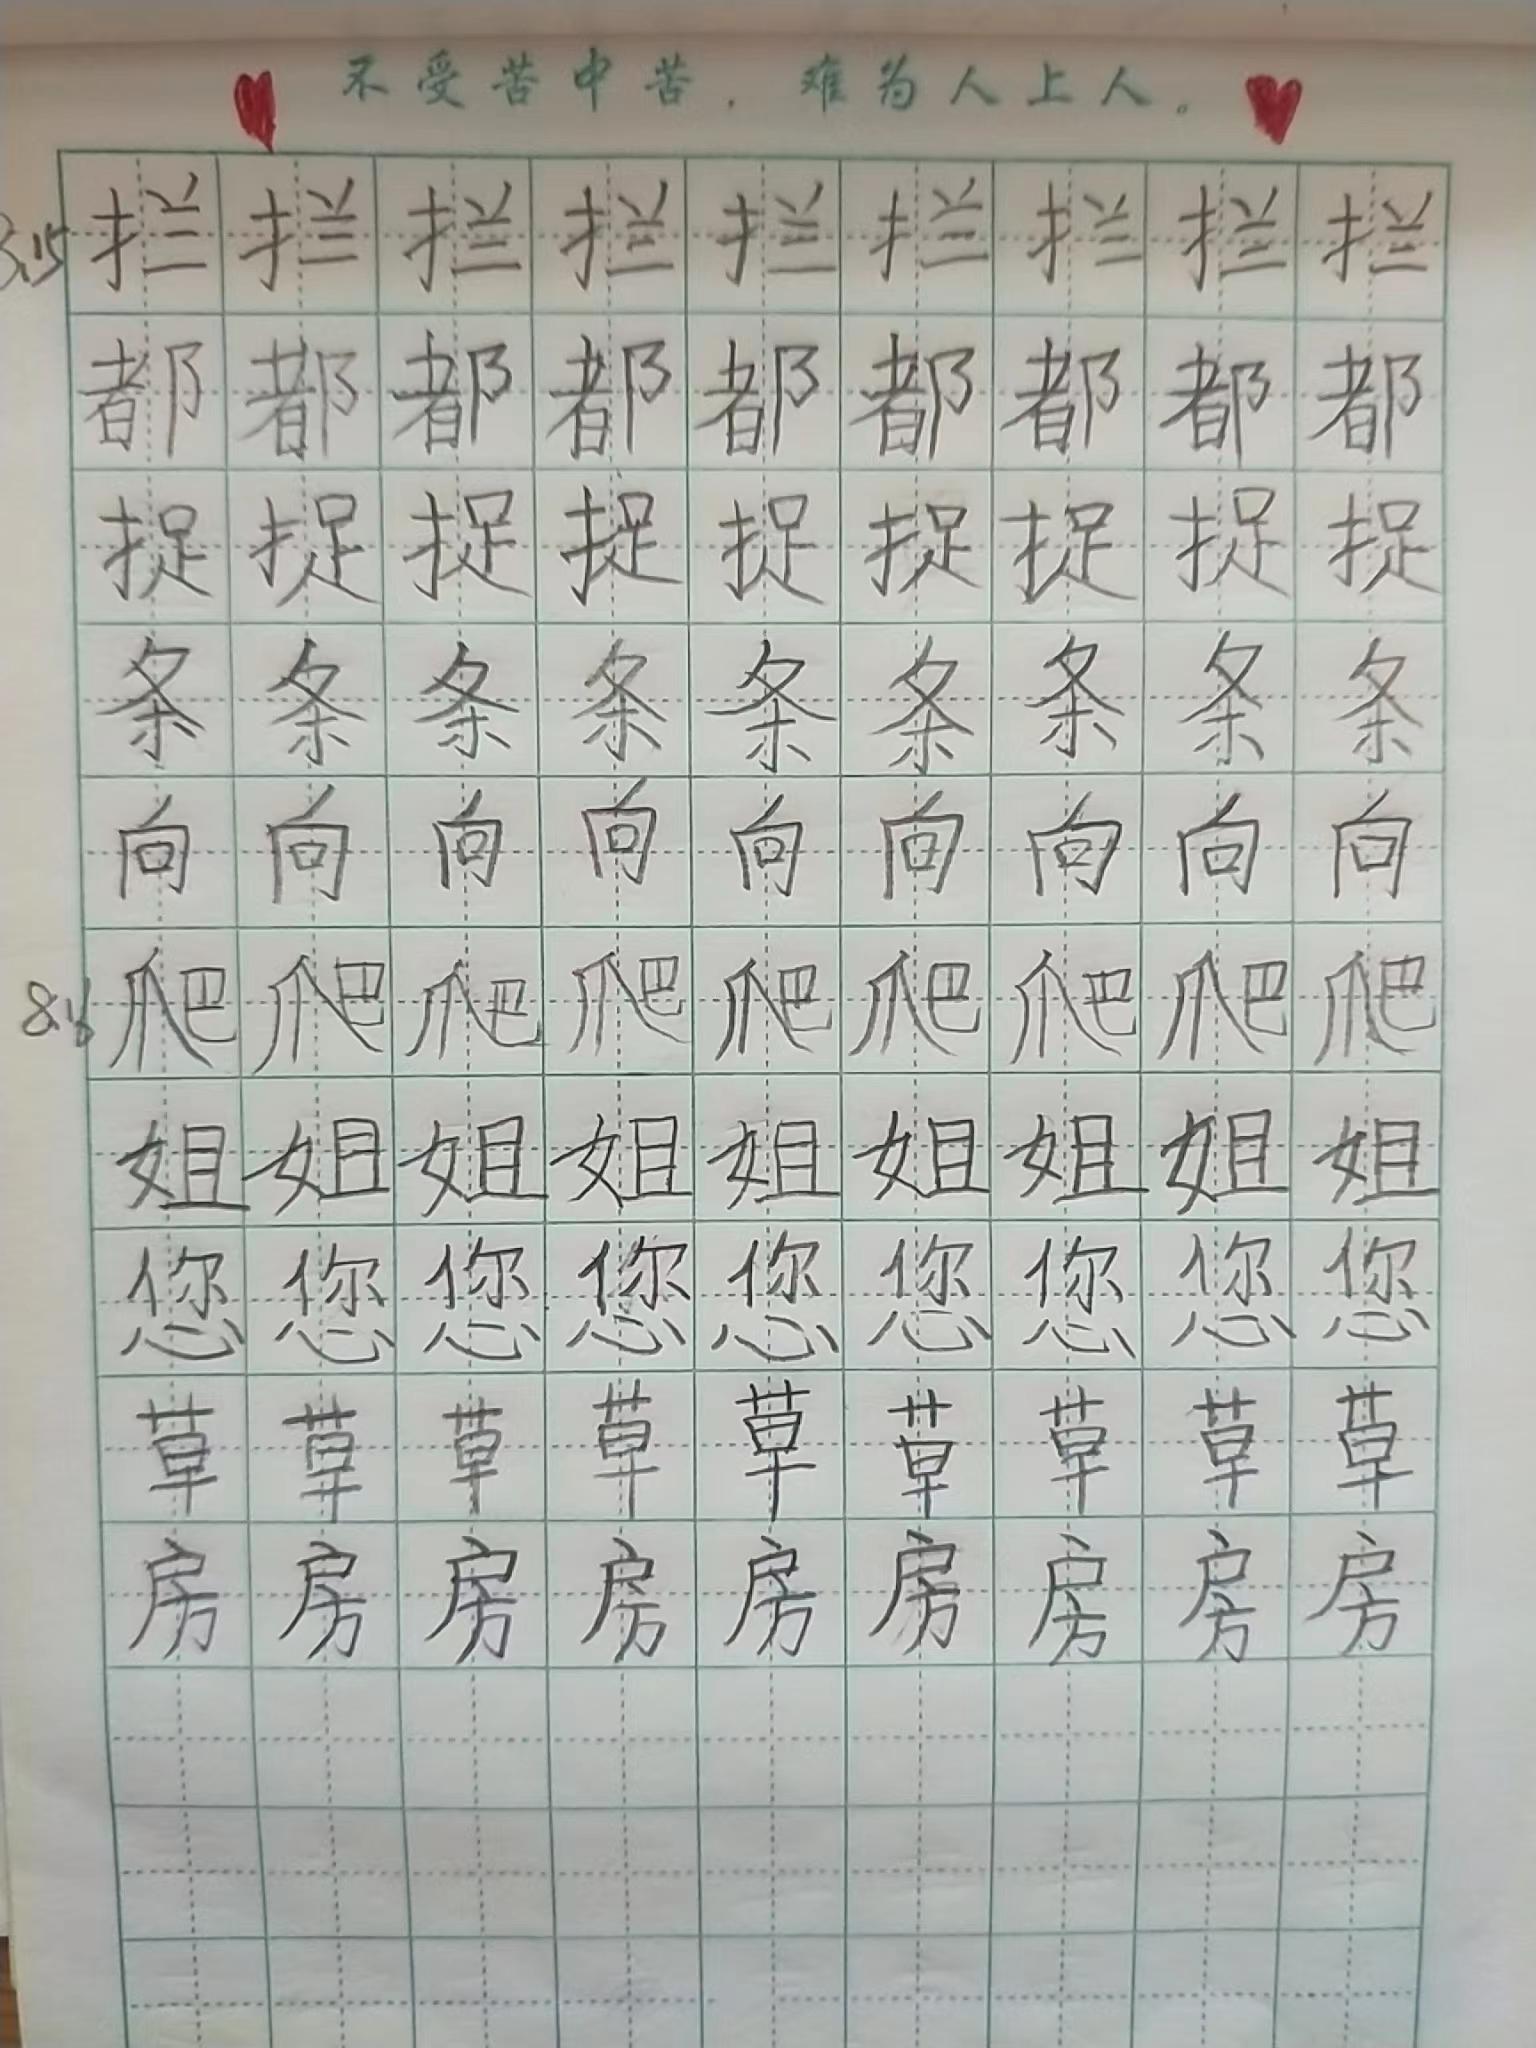 不受苦中苦，难为人上人。
3.15 拦拦拦拦拦拦拦拦拦
都都都都都都都都都
捉捉捉捉捉捉捉捉捉
条条条条条条条条条
向向向向向向向向向
8.16 爬爬爬爬爬爬爬爬爬
姐姐姐姐姐姐姐姐姐
您您您您您您您您您
草草草草草草草草草
房房房房房房房房房